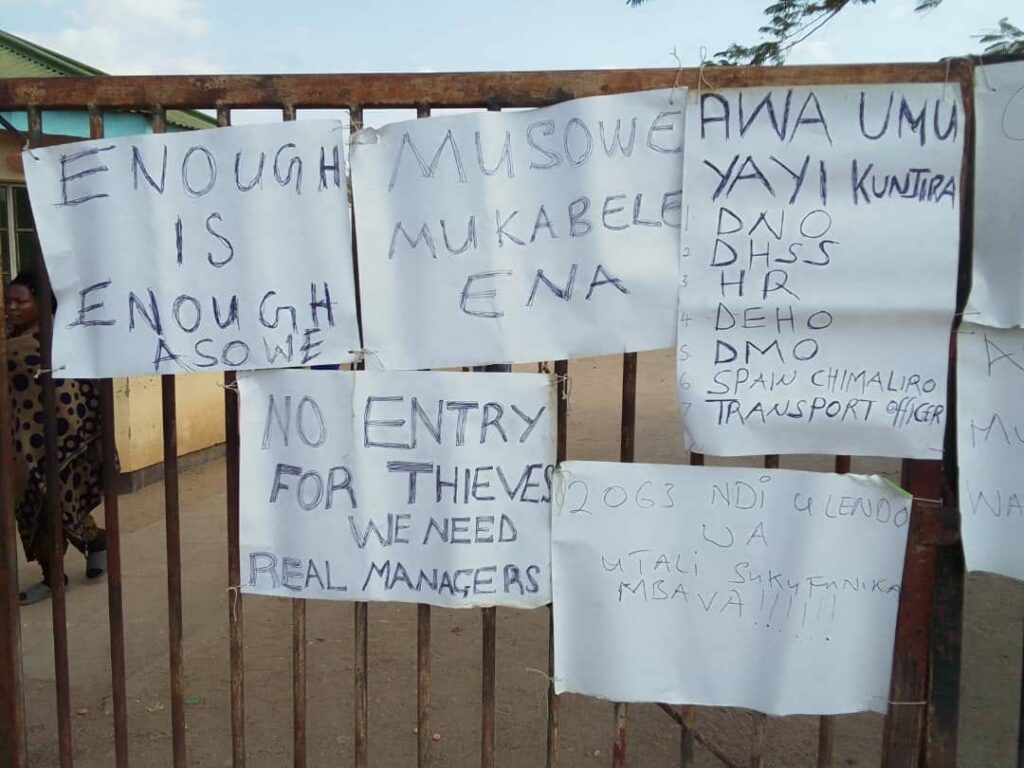 ENOUGH
IS
ENOUGH
ASOWE
MUSOWE
MUKABELE
ENA
AWA UMU
YAYI KUNJIRA
1 DNO
2 DHSS
3 HR
4 DEHO
5 DMO
6 SPAIN CHIMALIRO
7 TRANSPORT OFFICER
NO ENTRY
FOR THIEVES
WE NEED
REAL MANAGERS
2063 NDI ULENDO
UA
UTALI SUKUFUNIKA
MBAVA!!!!!!
A
MU
WA